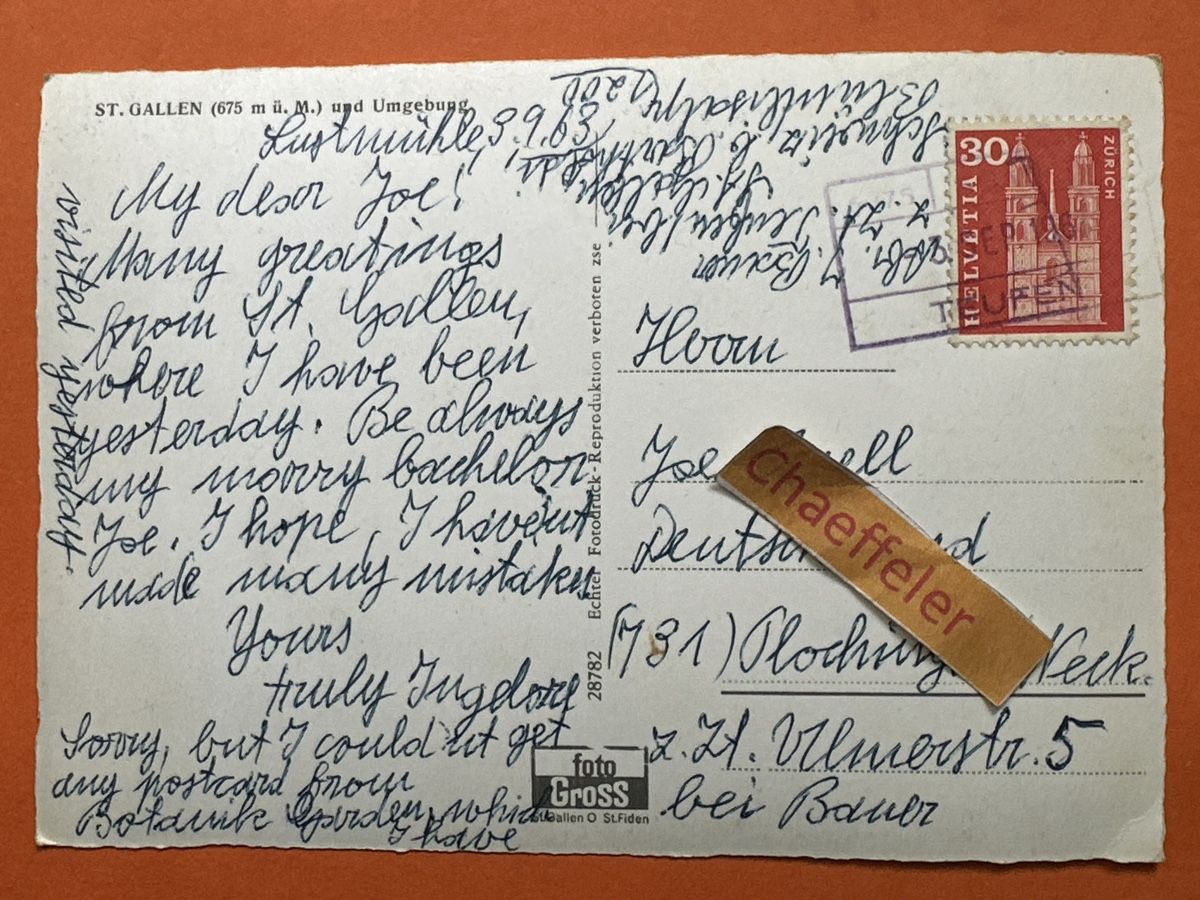 ST. GALLEN (675 m ü. M.) und Umgebung
Lustmühle,
My dear Joe!
Many greatings
from St. Gallen,
where I have been
yesterday. Be always
my morry bachelor
Joe. I hope, I haven't
made many mistakes
Yours
truly
Sorry, but I could nt get
any postcard from
Botanik Garden, which
I have
visited yesterday.
28782 Echter Fotodruck - Reproduktion verboten zse
foto
GROSS
St.Gallen O St.Fiden
J. Bauer
z. Zt. Teufen
St. Gallen
Schweiz
30
HELVETIA
ZÜRICH
TEUFEN
Herrn
Joe
Chaeffeler
(731) Neck.
z. Zt. Ulmerstr. 5
bei Bauer